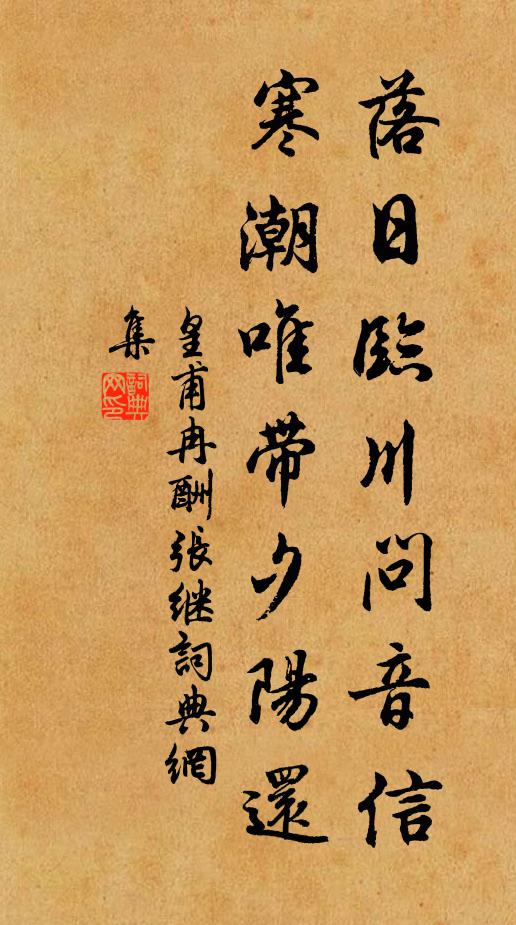 落日臨川問音信
寒潮唯帶夕陽還
皇甫冉酬張继詞典網
集
詞典
网印